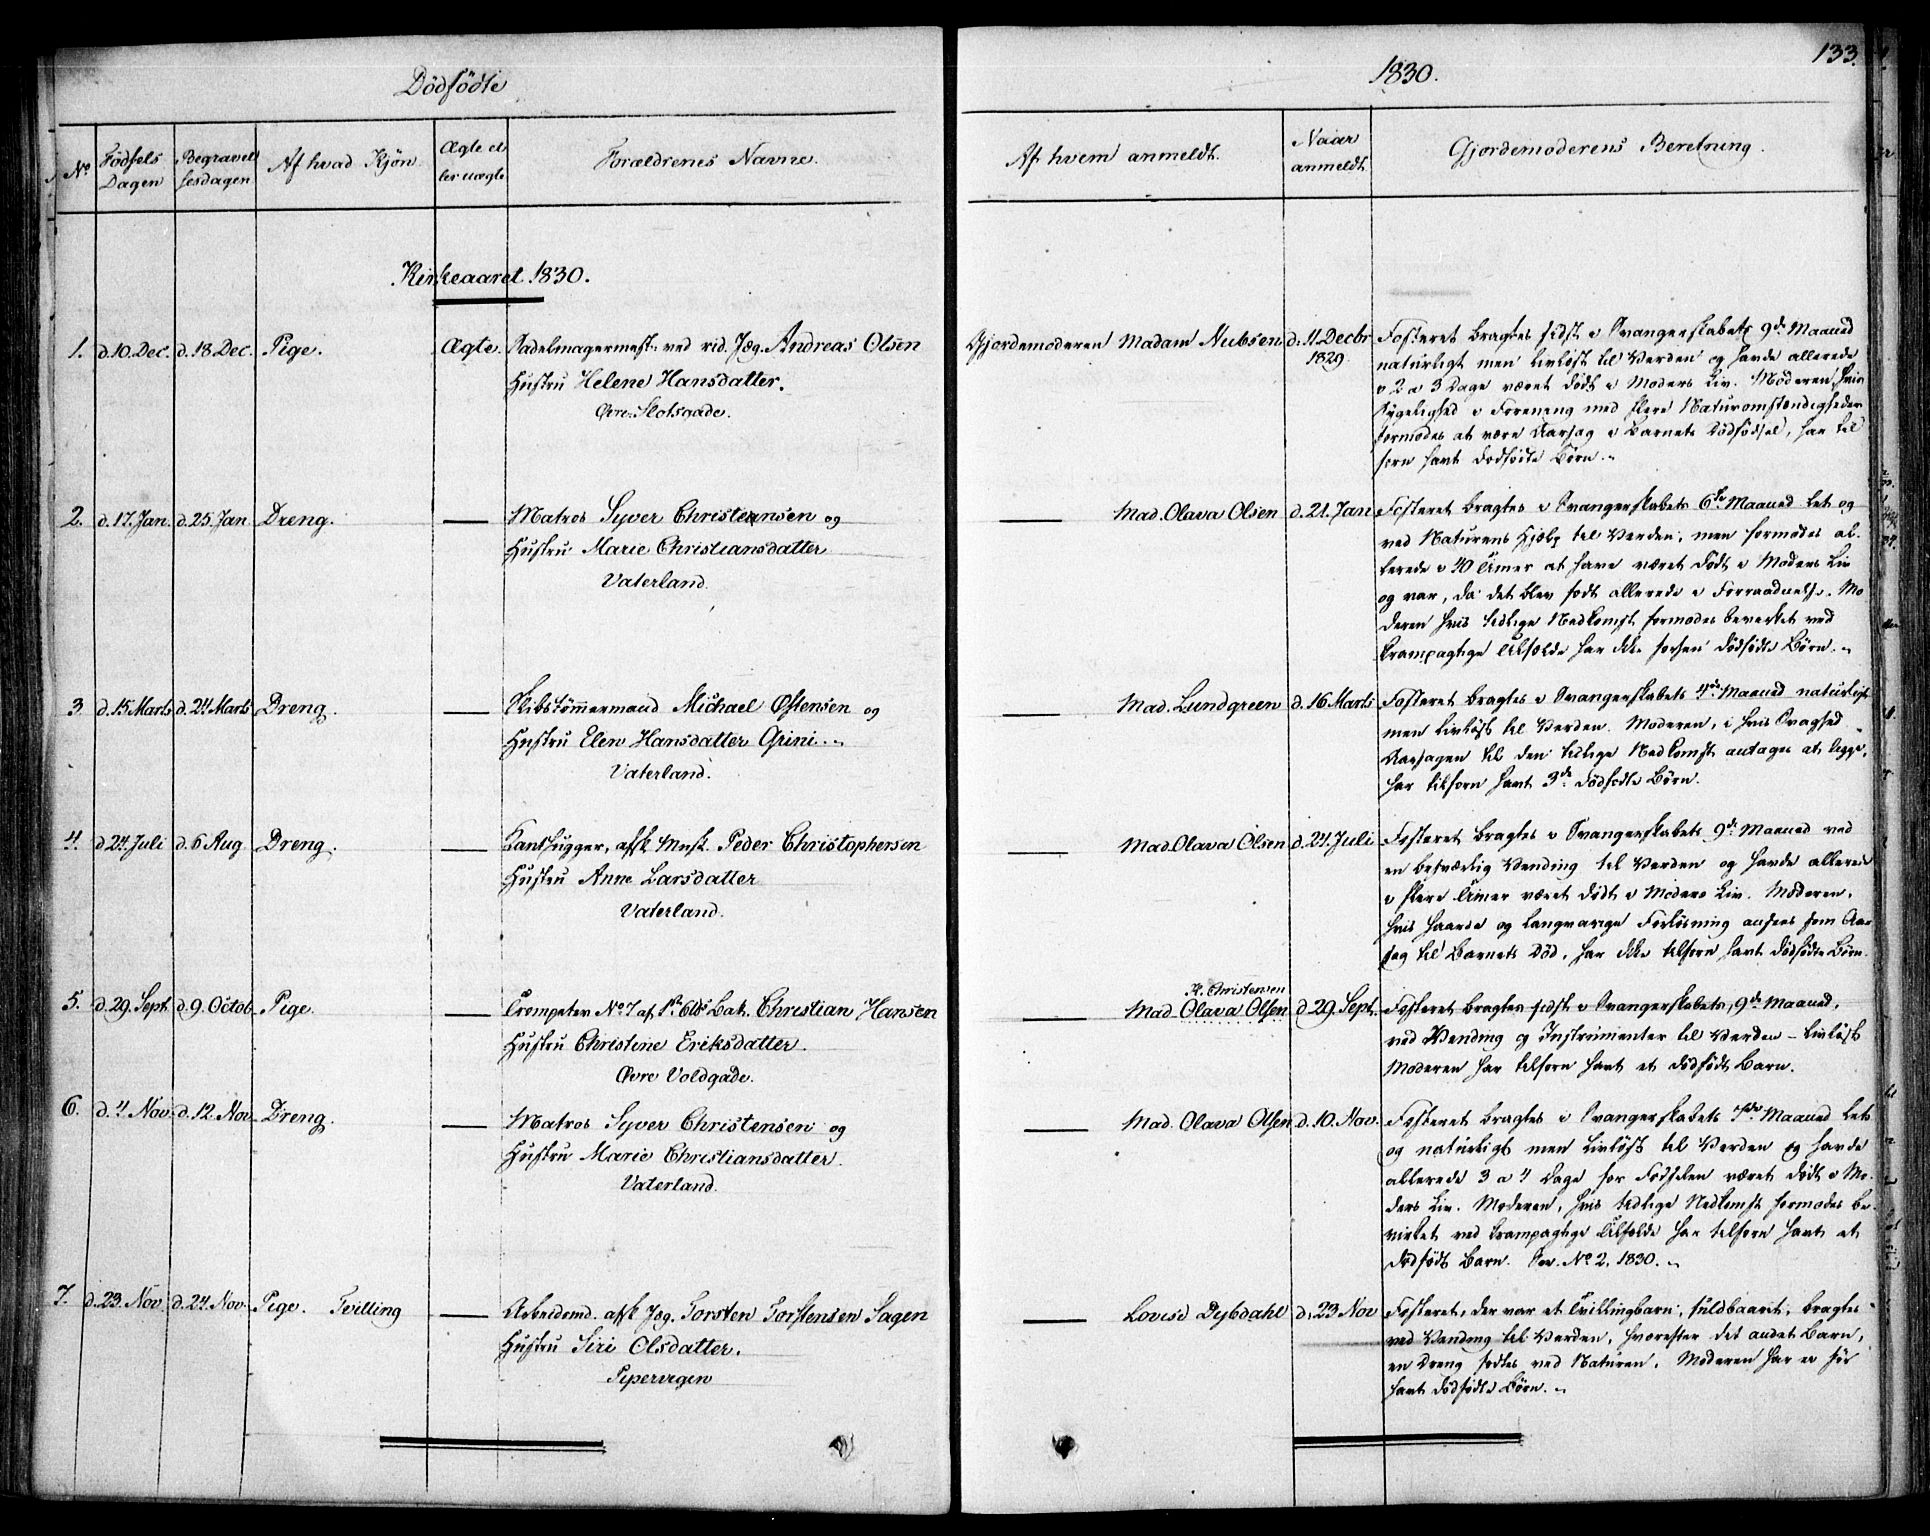 133.
Dödfödte
1830.
No
Födsels Dagen
Begravelsesdagen
Af hvad Kjön.
Ægte eller uægte
Forældrenes Navne.
Af hvem anmeldt.
Naar anmeldt
Gjordemoderens Beretning.
Kirkeaaret 1830.
1. d. 10. Dec. d. 18. Dec. Pige. Ægte. Sadelmagermest. ved rid. Jæg. Andreas Olsen
Hustru Helene Hansdatter.
Övre Slotsgade.
Gjordemoderen Madam Nubsen d. 11. Decbr
1829.
Fosteret bragtes sidst i Svangerskabets 9de Maaned
naturligt men livlöst til Verden og havde allerede
i 2 a 3 Dage været dödt i Moders Liv. Moderen, hvis
Sygelighed i Forening med flere Naturomstændigheder
formodes at være Aarsag i Barnets Dödfödsel, har til
forn havt dödfödte Börn.
2. d. 17. Jan. d. 25. Jan Dreng. — Matros Syver Christensen og
Hustru Marie Christiansdatter
Vaterland.
— Mad. Olava Olsen d. 21. Jan
Fosteret bragtes i Svangerskabets 6te Maaned let og
ved Naturens Hjelp til Verden, men formodes al-
lerede i 40 Timer at have været dödt i Moders Liv
og var, da det blev födt allerede i Forraadnelse. Mo
deren hvis tidlige Nedkomst formodes bevirket ved
krampagtige Tilfælde har ikke forhen dödfödte Börn.
3 d. 15 Marts d. 24 Marts Dreng. — Skibstömmermand Michael Östensen og
Hustru Elen Hansdatter Grini.
Vaterland.
— Mad. Lundgreen d. 16 Marts
Fosteret bragtes i Svangerskabets 4de Maaned naturligt
men livlöst til Verden. Moderen, i hvis Svaghed
Aarsagen til den tidlige Nedkomst antages at ligge,
har tilforn havt 3de dödfödte Börn.
4. d. 24. Juli d. 6 Aug Dreng. — afsk. Musk. Peder Christophersen
Hustru Anne Larsdatter
Vaterland.
— Mad. Olava Olsen d. 24. Juli
Fosteret bragtes i Svangerskabets 9de Maaned ved
en besværlig Vending til Verden og havde allerede
i flere Timer været dödt i Moders Liv. Moderen,
hvis haarde og langvarige Forlösning ansees som Aar
sag til Barnets Död, har ikke tilforn havt dödfödte Börn.
5. d. 29. Sept. d. 9. Octob. Pige. — Trompeter No 7 af Bat. Christian Hansen
Hustru Christine Eriksdatter.
Övre Voldgade.
K. Christensen
— Mad. Olava Olsen d. 29. Sept.
Fosteret bragtes sidst i Svangerskabets, 9de Maaned,
ved Vending og Instrumenter til Verden – livlöst
Moderen har tilforn havt et dödfödt Barn.
6. d. 4 Nov. d. 12. Nov. Dreng. — Matros Syver Christensen og
Hustru Marie Christiansdatter.
Vaterland.
— Mad. Olava Olsen d. 10. Nov.
Fosteret bragtes i Svangerskabets 7de Maaned let
og naturligt men livlöst til Verden og havde
allerede 3 a 4 Dage för Födselen været dödt i Mo-
ders Liv. Moderen, hvis tidlige Nedkomst formodes be-
virket ved krampagtige Tilfælde har tilforn havt et
dödfödt Barn. Sev. No 2, 1830.
7. d. 23. Nov d. 24. Nov. Pige. Tvilling — Arbeidsmd. afsk Jæg. Torsten Torstensen Sagen
Hustru Siri Olsdatter.
Pipervigen
— Lovise Dybdahl d. 23 Nov
Fosteret, der var et Tvillingbarn, fuldbaaret, bragtes
ved Vending til Verden, hvorefter det andet Barn,
en Dreng födtes ved Naturen. Moderen har ei för
havt dödfödte Börn.